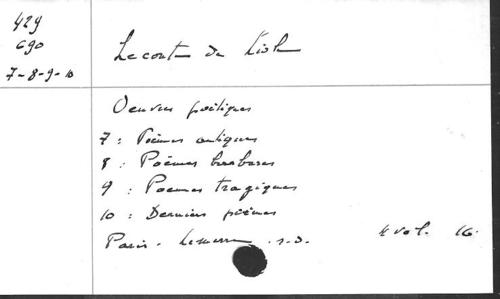 429
690
7-8-9-10
Leconte de Lisle
Oeuvres poétiques
7 : Poèmes antiques
8 : Poèmes barbares
9 : Poemes tragiques
10 : Derniers poèmes
Paris - Lemerre . s.d. 4 vol. 16.